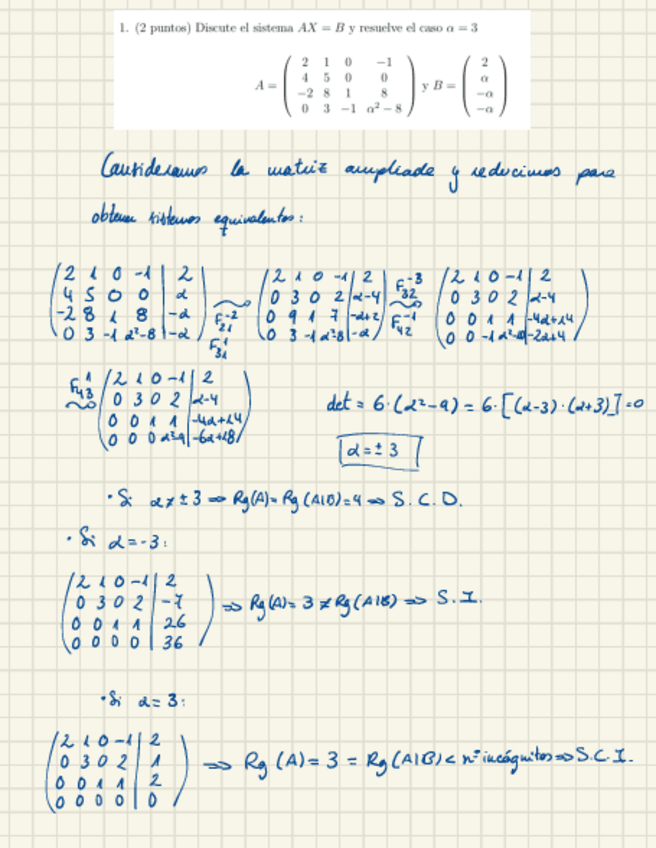 1. (2 puntos) Discute el sistema AX = B y resuelve el caso α = 3
A = ( 2 1 0 −1
4 5 0 0
−2 8 1 8
0 3 −1 α² − 8 ) y B = ( 2
α
−α
−α )
Consideramos la matriz ampliada y reducimos para
obtener sistemas equivalentes:
( 2 1 0 -1 | 2
4 5 0 0 | α
-2 8 1 8 | -α
0 3 -1 α²-8 | -α )
F₂₁⁻²
F₃₁¹
( 2 1 0 -1 | 2
0 3 0 2 | α-4
0 9 1 7 | -α+2
0 3 -1 α²-8 | -α )
F₃₂⁻³
F₄₂⁻¹
( 2 1 0 -1 | 2
0 3 0 2 | α-4
0 0 1 1 | -4α+14
0 0 -1 α²-10 | -2α+4 )
F₄₃¹
( 2 1 0 -1 | 2
0 3 0 2 | α-4
0 0 1 1 | -4α+14
0 0 0 α²-9 | -6α+18 )
det = 6·(α²-9) = 6·[(α-3)·(α+3)] = 0
α = ± 3
· Si α ≠ ±3 ⇒ Rg(A) = Rg(A|B) = 4 ⇒ S.C.D.
· Si α = -3:
( 2 1 0 -1 | 2
0 3 0 2 | -7
0 0 1 1 | 26
0 0 0 0 | 36 ) ⇒ Rg(A) = 3 ≠ Rg(A|B) ⇒ S.I.
· Si α = 3:
( 2 1 0 -1 | 2
0 3 0 2 | 1
0 0 1 1 | 2
0 0 0 0 | 0 ) ⇒ Rg (A) = 3 = Rg(A|B) < nº incógnitas ⇒ S.C.I.